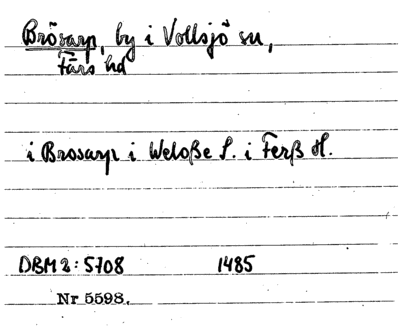 Brösarp, by i Vollsjö sn,
Färs hd
i Brosarp i Weloße S. i Ferß H.
DBM 2: 5708 1485
Nr 5598.